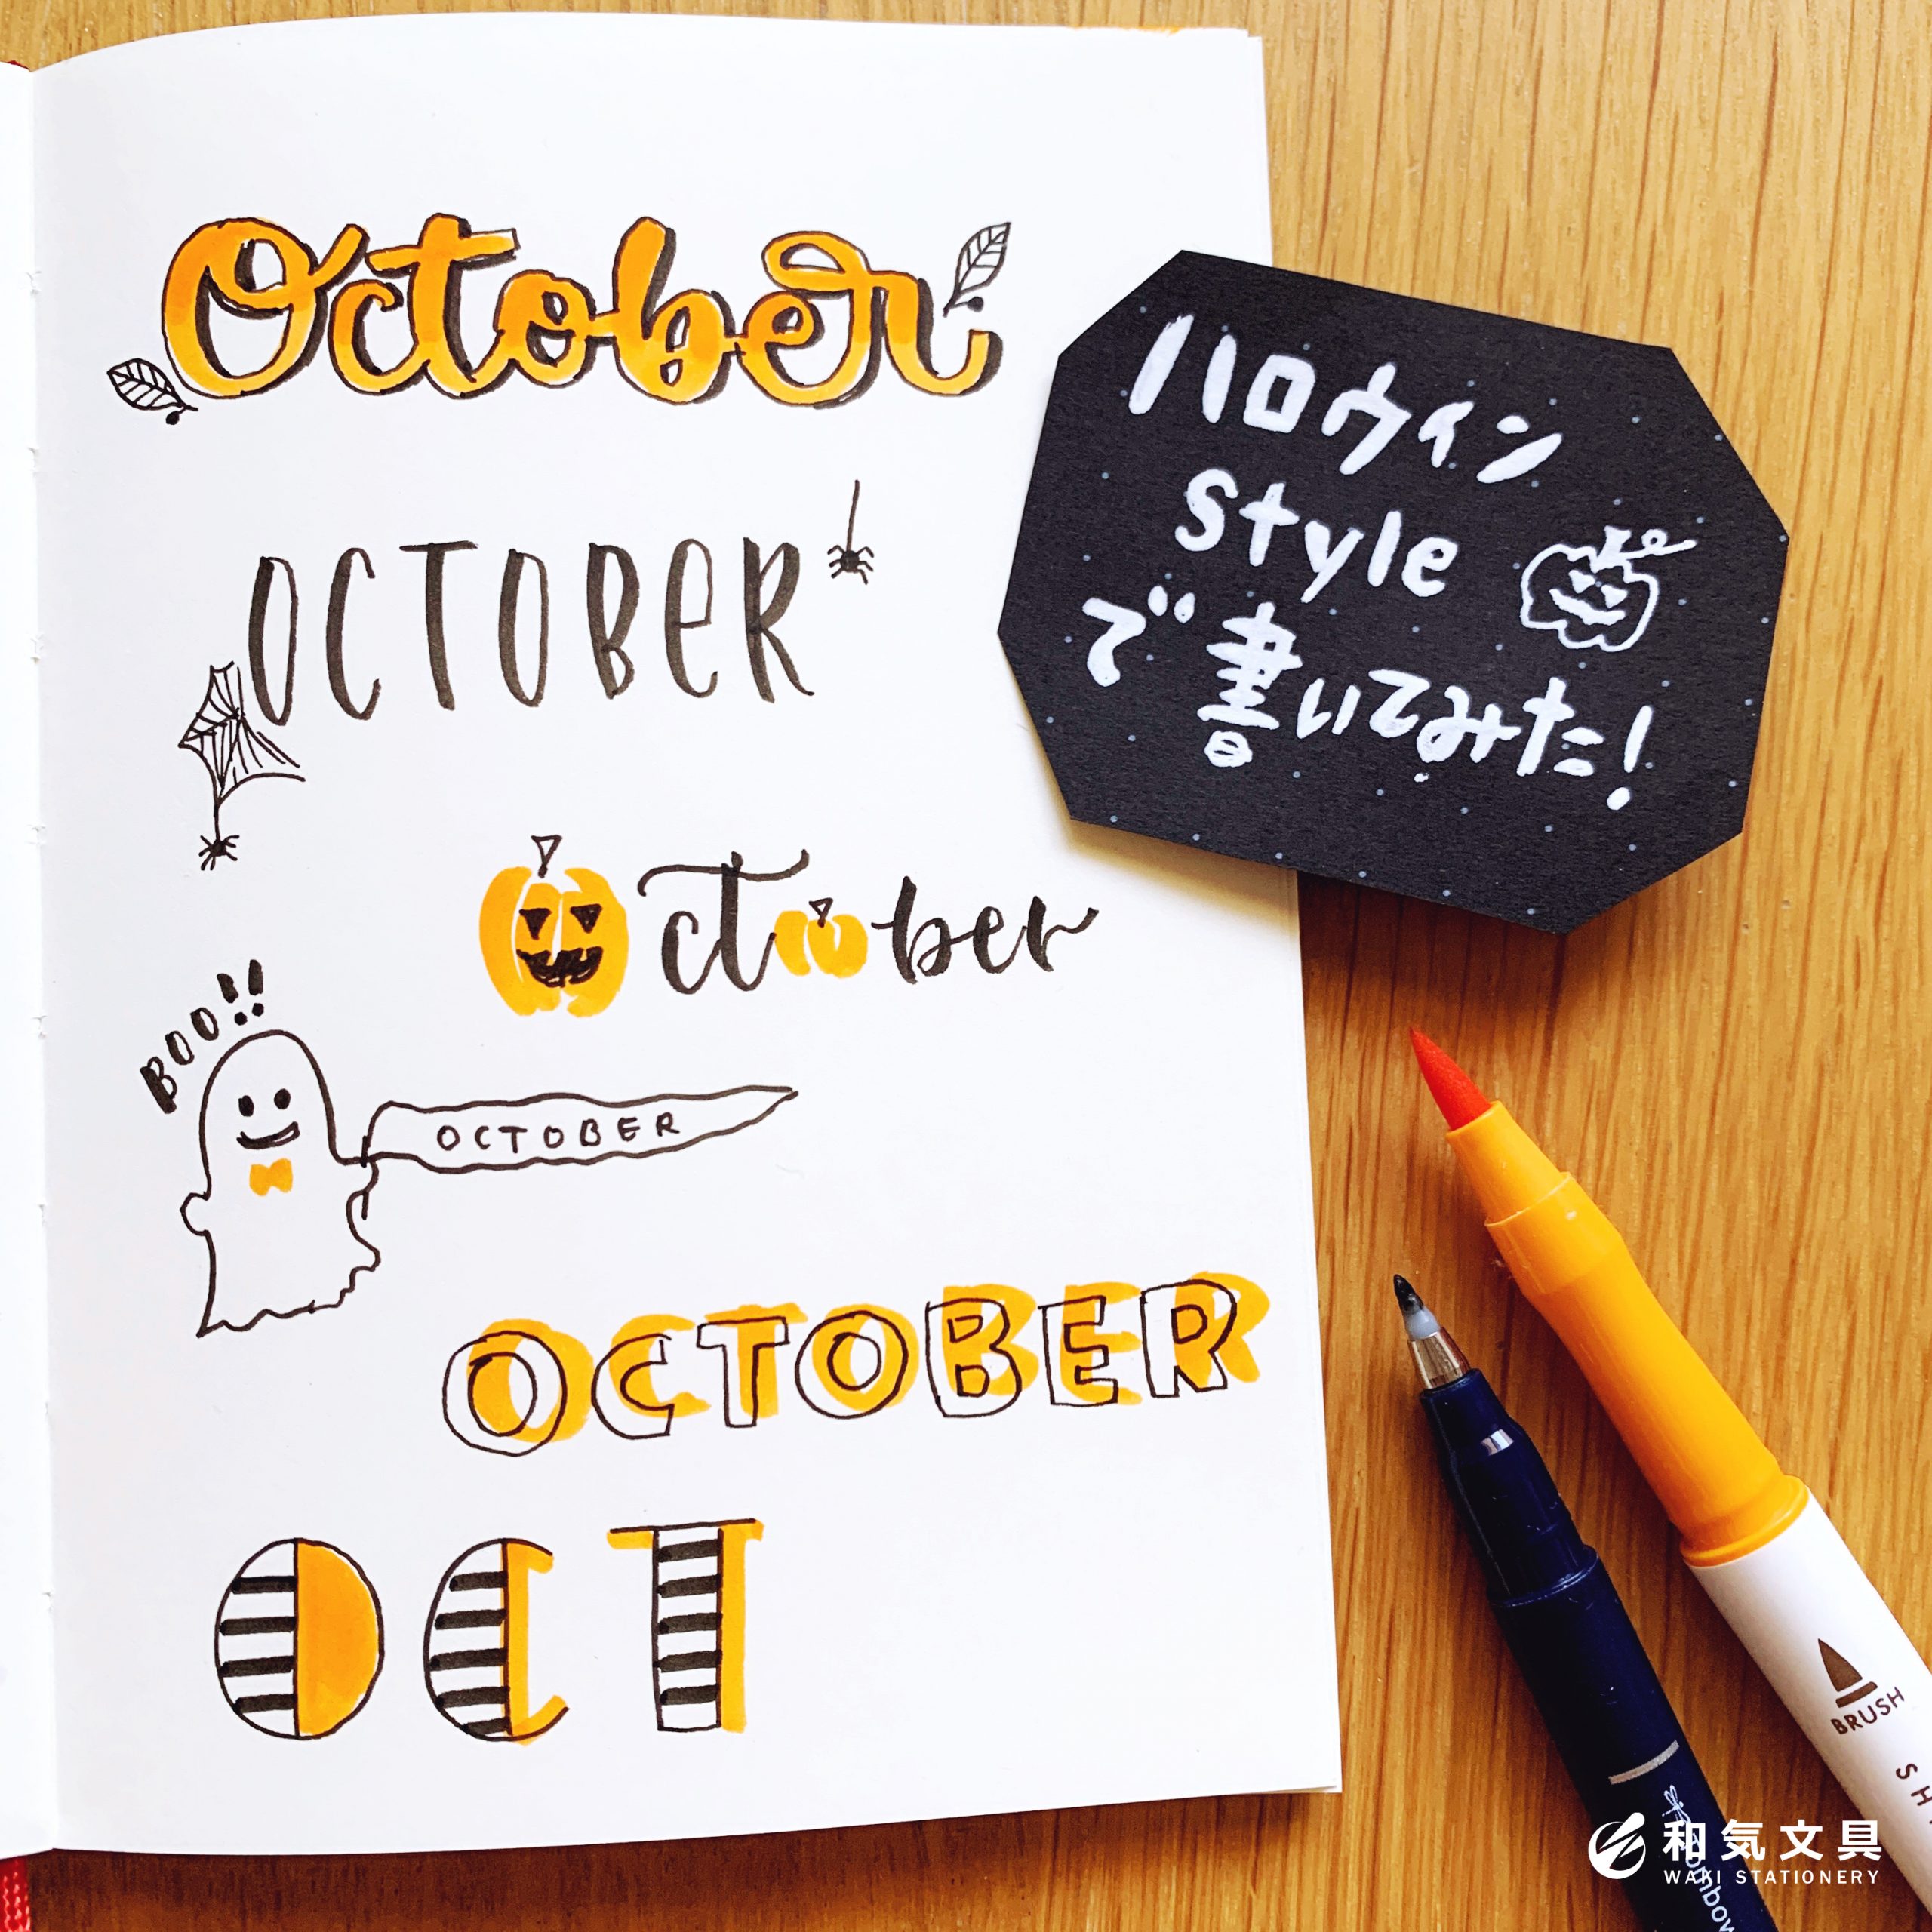 October
OCTOBER
October
BOO!!
OCTOBER
OCTOBER
OCT
ハロウィン
style
で書いてみた!
BRUSH
SH
Tombow
和気文具
WAKI STATIONERY